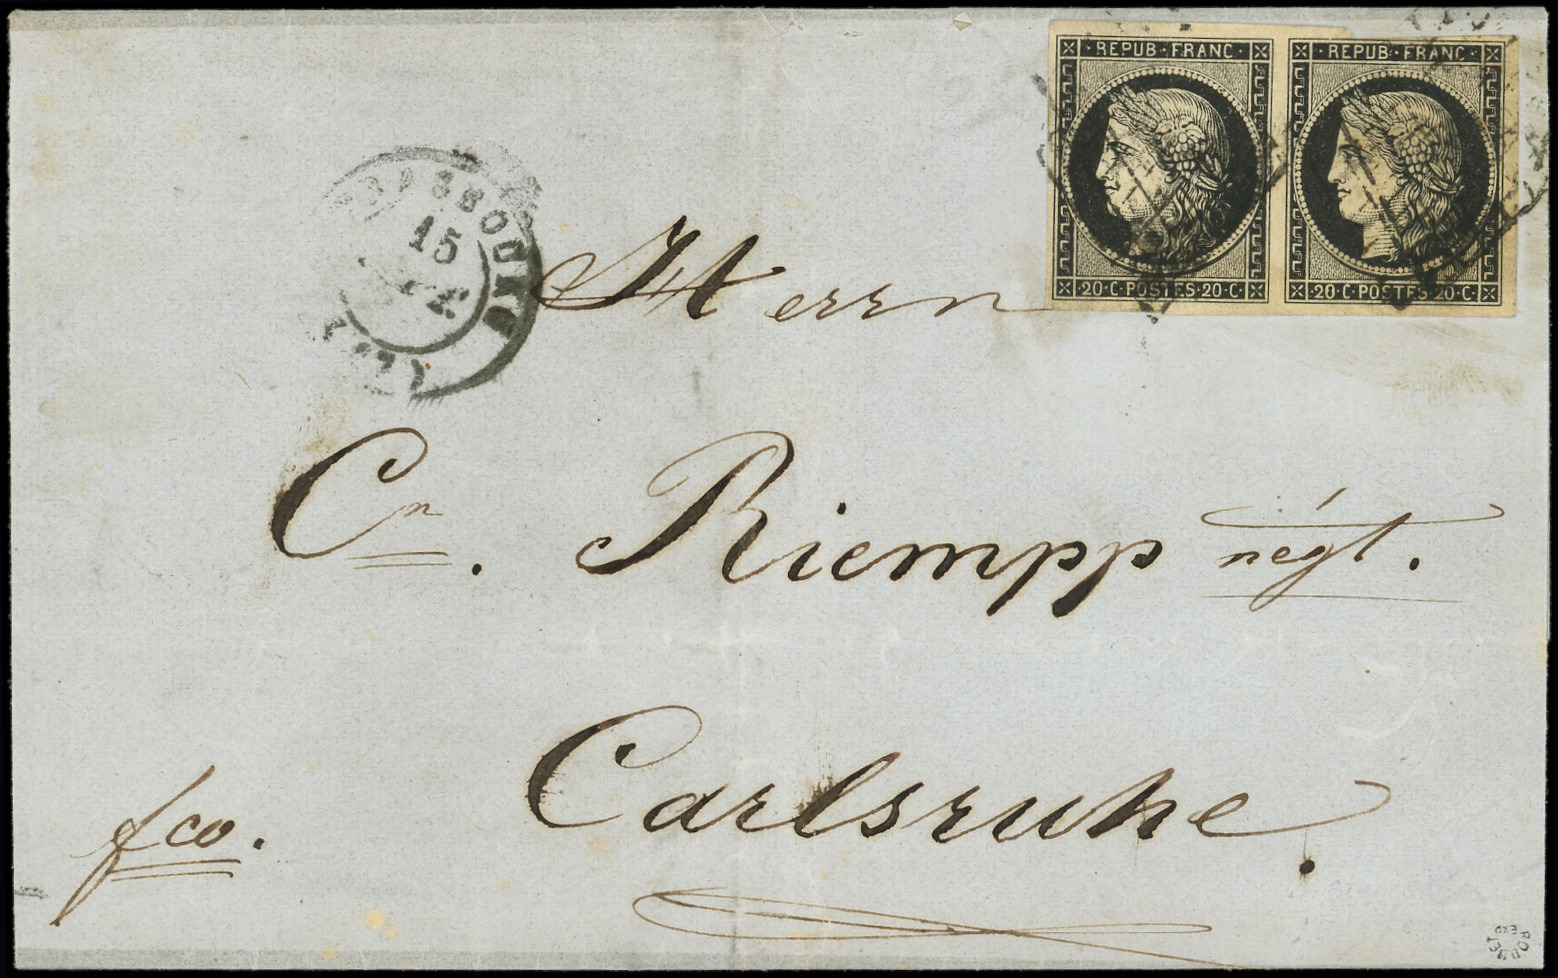 REPUB FRANC REPUB FRANC
20·C·POSTES·20·C· 20·C·POSTES·20·C·
STRASBOURG
15
Herrn
Cn. Riempp négt.
Carlsruhe.
fco.
ROUMET
EXP